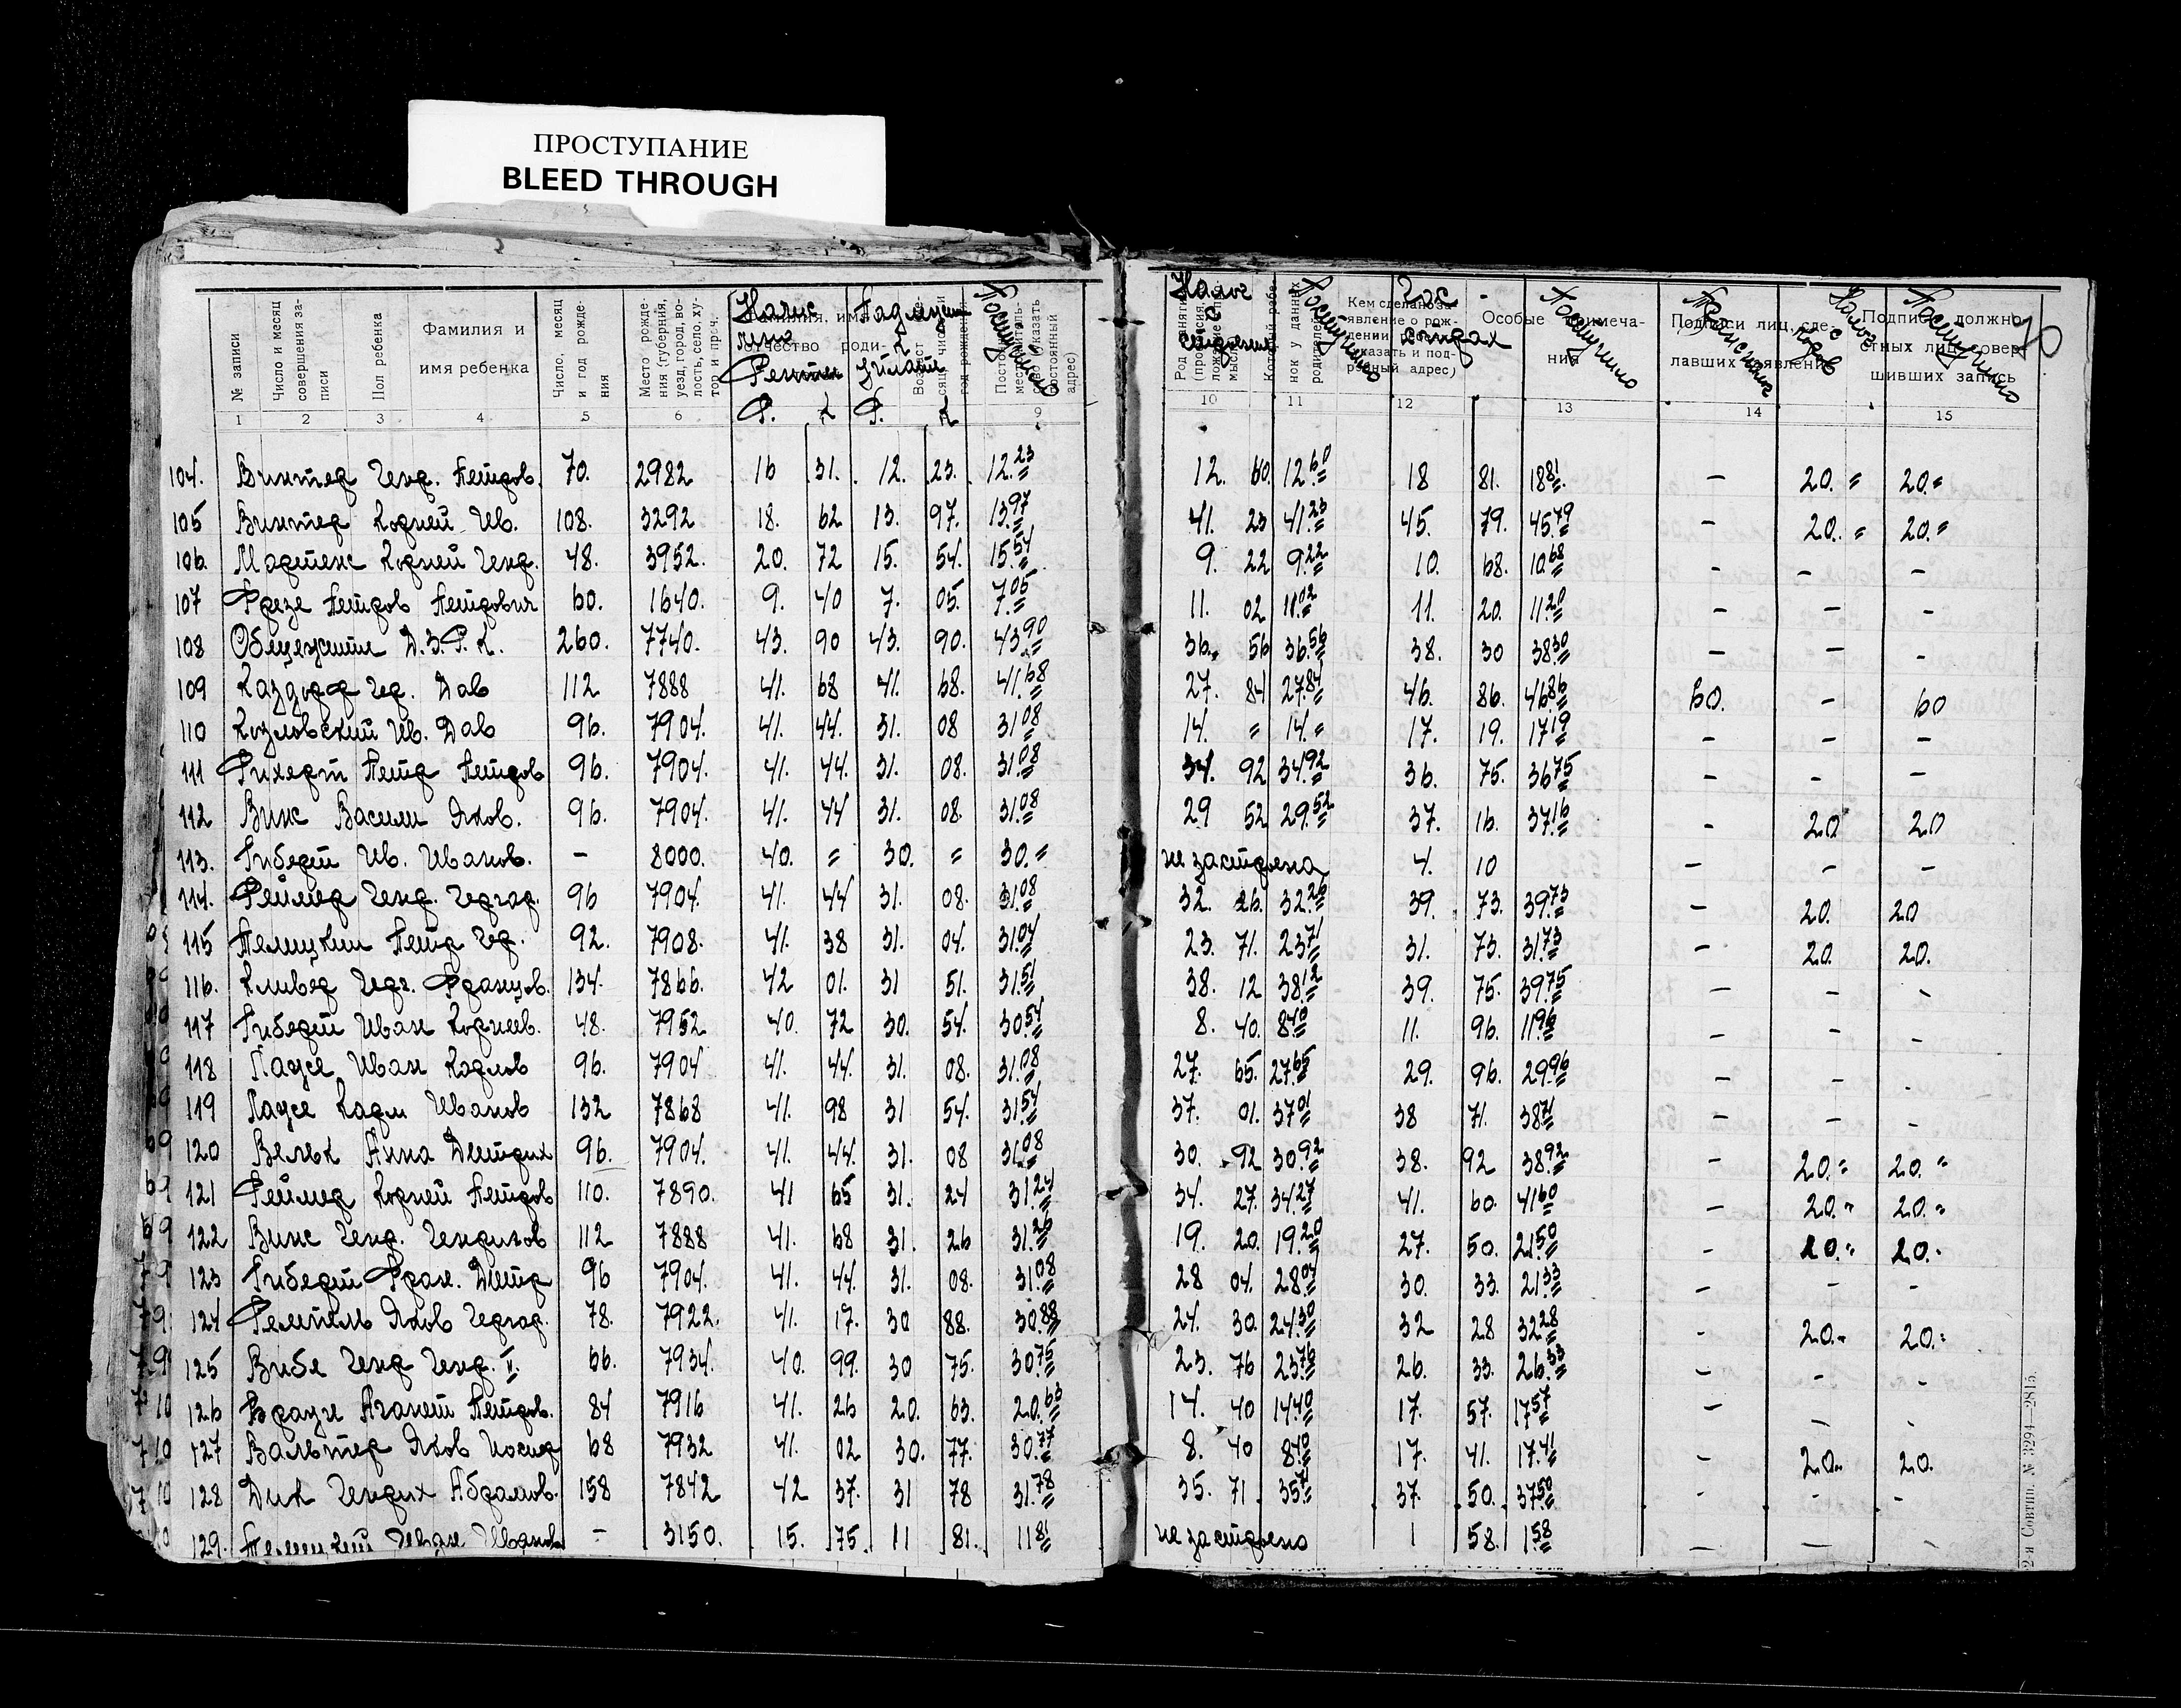 ПРОСТУПАНИЕ
BLEED THROUGH
№ записи
Число и месяц совершения записи
Пол ребенка
Фамилия и имя ребенка
Число, месяц и год рождения
Место рождения (губерния, уезд, город, волость, село, хутор и проч.
Род занятий
Кем сделано заявление о рождении (указать и подробный адрес)
Особые примечания
Подписи лиц, сделавших заявление
Подписи должностных лиц, совершивших запись
1 2 3 4 5 6 9 10 11 12 13 14 15
Р. к Р. к
104. Винтер Генр. Петров. 70. 2982 16 31. 12. 23. 12.23 12. 60. 12.60 18 81. 18.81 – 20. = 20. =
105 Винтер Корней Ив. 108. 3292 18. 62 13. 97. 13.97 41. 23 41.23 45. 79. 45.79 – 20. = 20. =
106. Мартенс Корней Генр. 48. 3952. 20. 72 15. 54. 15.54 9. 22 9.22 10. 68. 10.68 – – –
107 Фрезе Петров Петрович 60. 1640. 9. 40 7. 05. 7.05 11. 02 11.02 11. 20. 11.20 – – –
108 Общежитие Д.З.Р.К. 260. 7740. 43. 90 43. 90. 43.90 36. 56 36.56 38. 30 38.30 – – –
109 Каздорф Гер. Дав 112 7888 41. 68 41. 68. 41.68 27. 84 27.84 46. 86. 46.86 60. – 60
110 Козловский Ив. Дав 96. 7904. 41. 44. 31. 08 31.08 14. = 14. = 17. 19. 17.19 – – –
111 Рихерт Петр Петров 96. 7904. 41. 44. 31. 08. 31.08 34. 92 34.92 36. 75. 36.75 – – –
112 Винс Васили Яков. 96. 7904. 41. 44 31. 08. 31.08 29 52 29.52 37. 16. 37.16 – 20 20
113. Гиберт Ив. Иванов. – 8000. 40. = 30. = 30. = не застроена 4. 10 – – –
114. Реймер Генр. Герхар. 96 7904. 41. 44 31. 08. 31.08 32. 26. 32.26 39. 73. 39.73 – 20. 20
115 Телицкий Петр Гер. 92. 7908. 41. 38 31. 04. 31.04 23. 71. 23.71 31. 73. 31.73 – 20. 20.
116. Кливер Герг. Францов. 134. 7866. 42 01. 31 51. 31.51 38. 12 38.12 39. 75. 39.75 – – –
117 Гиберт Иван Корнеев. 48. 7952 40. 72 30. 54. 30.54 8. 40. 8.40 11. 96. 11.96 – – –
118 Паусе Иван Карлов 96. 7904 41. 44. 31. 08. 31.08 27. 65. 27.65 29. 96. 29.96 – – –
119 Паусе Карл Иванов 132 7868 41. 98 31 54. 31.54 37. 01. 37.01 38 71. 38.71 – – –
120 Вельк Анна Дитрих 96. 7904. 41. 44. 31. 08 31.08 30. 92 30.92 38. 92 38.92 – 20. = 20. =
121 Реймер Корней Петров 110. 7890. 41 65 31. 24 31.24 34. 27. 34.27 41. 60. 41.60 – 20. = 20. =
122 Винс Генр. Генрихов 112 7888 41. 68 31. 26 31.26 19. 20. 19.20 27. 50. 21.50 – 20. = 20. =
123 Гиберт Фран. Дитр 96 7904. 41. 44. 31. 08. 31.08 28 04. 28.04 30. 33. 21.33 – – –
124 Ремпель Яков Герхар. 78. 7922. 41. 17. 30 88. 30.88 24. 30. 24.30 32 28 32.28 – 20. = 20. =
125 Вибе Генр Генр. II. 66. 7934. 40. 99. 30 75. 30.75 23. 76 23.76 26. 33. 26.33 – – –
126 Браун Аганет Петров. 84 7916 41. 26 20. 63. 20.63 14. 40 14.40 17. 57. 17.57 – – –
127 Вальтер Яков Иосиф 68 7932 41. 02 30. 77. 30.77 8. 40 8.40 17. 41. 17.41 – 20. = 20.
128 Дик Генрих Абрамов. 158 7842 42 37. 31 78 31.78 35. 71 35.71 37. 50. 37.50 – – –
129. Телицкий Иван Иванов – 3150. 15. 75. 11 81. 11.81 не застроено 1 58. 1.58 – – –
2-я Совтип. № 3294—2815.